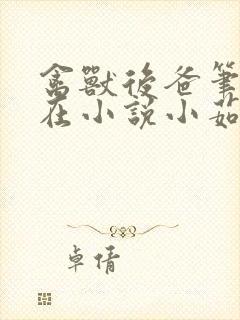 禽獸後爸筆
在小說小茹
卓倩